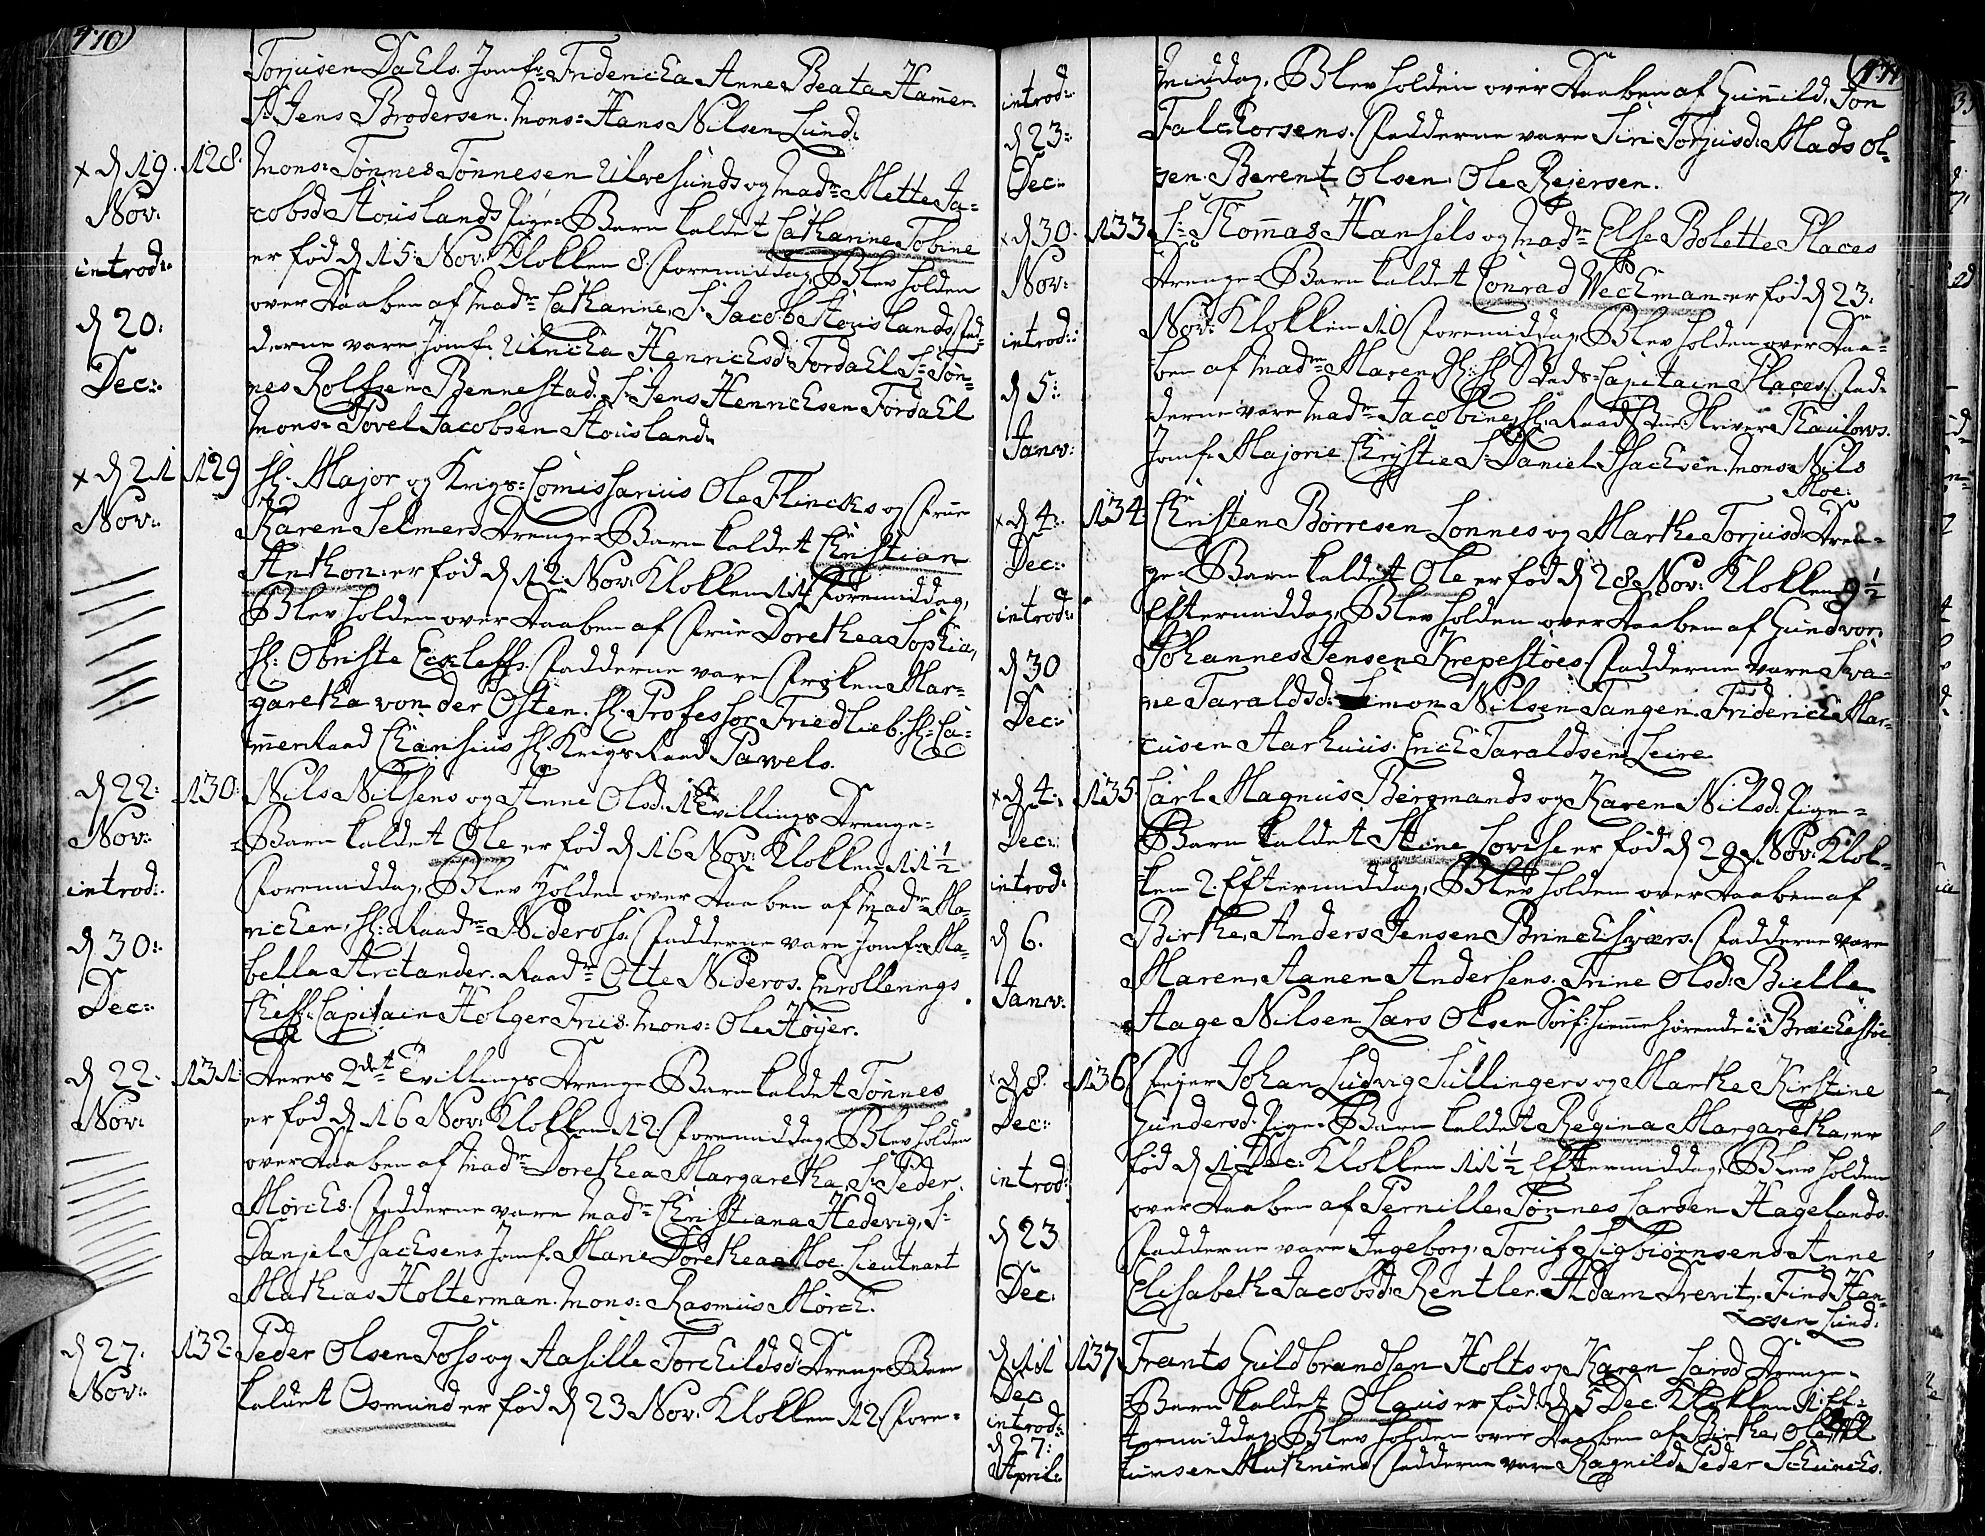 470
Torjusen Dahls. Jomf: Fridericha Anne Beata Hammer
Sr: Jens Brodersen. Mons: Hans Nilsen Lund.
x d 19. Nov: introd: d 20: Dec:
128. Mons: Tønnes Tønnesen Ulvesunds og Mad: Mette Ja-
cobsd Stouslands Pige-Barn kaldet Catharine Tobine
er fød d 15 Nov: Klokken 8 Formiddag, Blev holden
over Daaben af Mad: Catharine, Sr: Jacob Stouslands, Fad-
derne vare Jomf: Ulricha Henrichsd: Fordahl Sr: Tøn-
nes Rolfsen Bennestad. Sr: Jens Henrichsen Fordahl
Mons: Povel Jacobsen Stousland.
x d 21 Nov:
129 Hr: Major og Krigs-Comissarius Ole Flincks og Frue
Karen Selmers Drenge-Barn kaldet Christian
Anthon er fød d 12 Nov: Klokken 11 Formiddag,
Blev holden over Daaben af Frue Dorethea Sophia,
Hr: Obriste Eccleffs. Fadderne vare Frøken Mar-
garetha von der Osten. Hr: Professor Friedlieb. Hr: Ca-
merRaad Chansius Hr: Krigs Raad Pawels.
d 22: Nov: introd: d 30: Dec:
130: Nils Nilsens og Anne Olsd: 1ste Tvillings Drenge-
Barn kaldet Ole er fød d 16 Nov: Klokken 11 1/2
Formiddag, Blev Holden over Daaben af Mad: Ma-
richen, Hr: Raad: Nideross. Fadderne vare Jomf: Ma-
bella Arctander. Raad: Otte Nideros. Enrollerings
Cheff: Capitain Holger Friis. Mons: Ole Høyer.
d 22. Nov:
131: Deres 2det Tvillings Drenge Barn kaldet Tønnes
er fød d 16 Nov: Klokken 12 Formiddag Blev holden
over Daaben af Mad: Dorethea Margaretha, Sr: Peder
Mørchs. Fadderne vare Mad: Christiana Hedevig, Sr:
Danjel Isachsens. Jomf: Mane Dorethea Moe. Lieutnant
Mathias Holterman. Mons: Rasmus Mørch.
d 27. Nov:
132: Peder Olsen Foss og Aasille Torchildsd: Drenge Barn
kaldet Osmund er fød d 23 Nov: Klokken 12 Fore-
471
introd: d 23: Dec:
middag, Blev holden over Daaben af Gunnild, Jon
Falchorsens. Fadderne vare Siri Torjusd: Mads Ol-
sen. Berent Olsen. Ole Rejersen.
x d 30. Nov: introd: d 5: Janv:
133 Sr: Thomas Hansels og Mad: Else Bolette Places
Drenge-Barn kaldet Conrad Weckman er fød d 23:
Nov: Klokken 10 Formiddag, Blev holden over Daa-
ben af Mad: Maren, Capitain Places. Fad-
derne vare Mad: Jacobine, Hr: Raad Skriver Thaulows.
Jomf: Majorie Christie Sr: Daniel Isachsen. Mons: Nils
Moe:
x d 4: Dec: introd: d 30 Dec:
134 Christen Børresen Lonnes og Marthe Torjusd: Dren-
ge-Barn kaldet Ole er fød d 28 Nov: Klokken 9 1/2
Eftermiddag, Blev holden over Daaben af Gundvor,
Johannes Jensen Krepestøes. Fadderne vare Sva-
ne Taraldsd: Simon Nilsen Tangen. Friderich Mar-
cusen Aarhuus. Erich Taraldsen Leire
x d 4: Dec: introd: d 6. Janv:
135 Carl Magnus Bergmands og Karen Nilsd: Pige-
Barn kaldet Stine Lovise er fød d 29 Nov: Klok-
ken 2. Eftermiddag, Blev holden over Daaben af
Birthe, Anders Jensen Brinchsværs. Fadderne vare
Maren, Aanen Andersens. Trine Olsd: Bielle
Aage Nilsen. Lars Olsen
x d 8. Dec: introd: d 23 Dec:
136 Fejer Johan Ludvig Sullingers og Marthe Kirstine
Gundersd: Pige-Barn kaldet Regina Margaretha er
fød d 1 Dec: Klokken 11 1/2 Eftermiddag, Blev holden
over Daaben af Pernille, Tønnes Larsen Hagelands.
Fadderne vare Ingeborg, Torius Sigbiørnsens. Anne
Elisabeth Jacobsd: Rentler. Adam Drevitz. Find Han-
sen Lund.
d 11 Dec introd: d 27: April:
137 Frants Guldbrandsen Holts og Karen Larsd: Drenge-
Barn kaldet Olaus er fød d 5 Dec: Klokken 1. Ef-
termiddag, Blev holden over Daaben af Birthe, Ole
Fadderne vare Ragnild, Peder Schunchs.